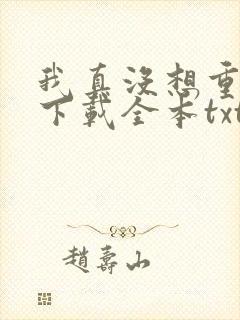 我真没想重
下载全本txt
赵寿山